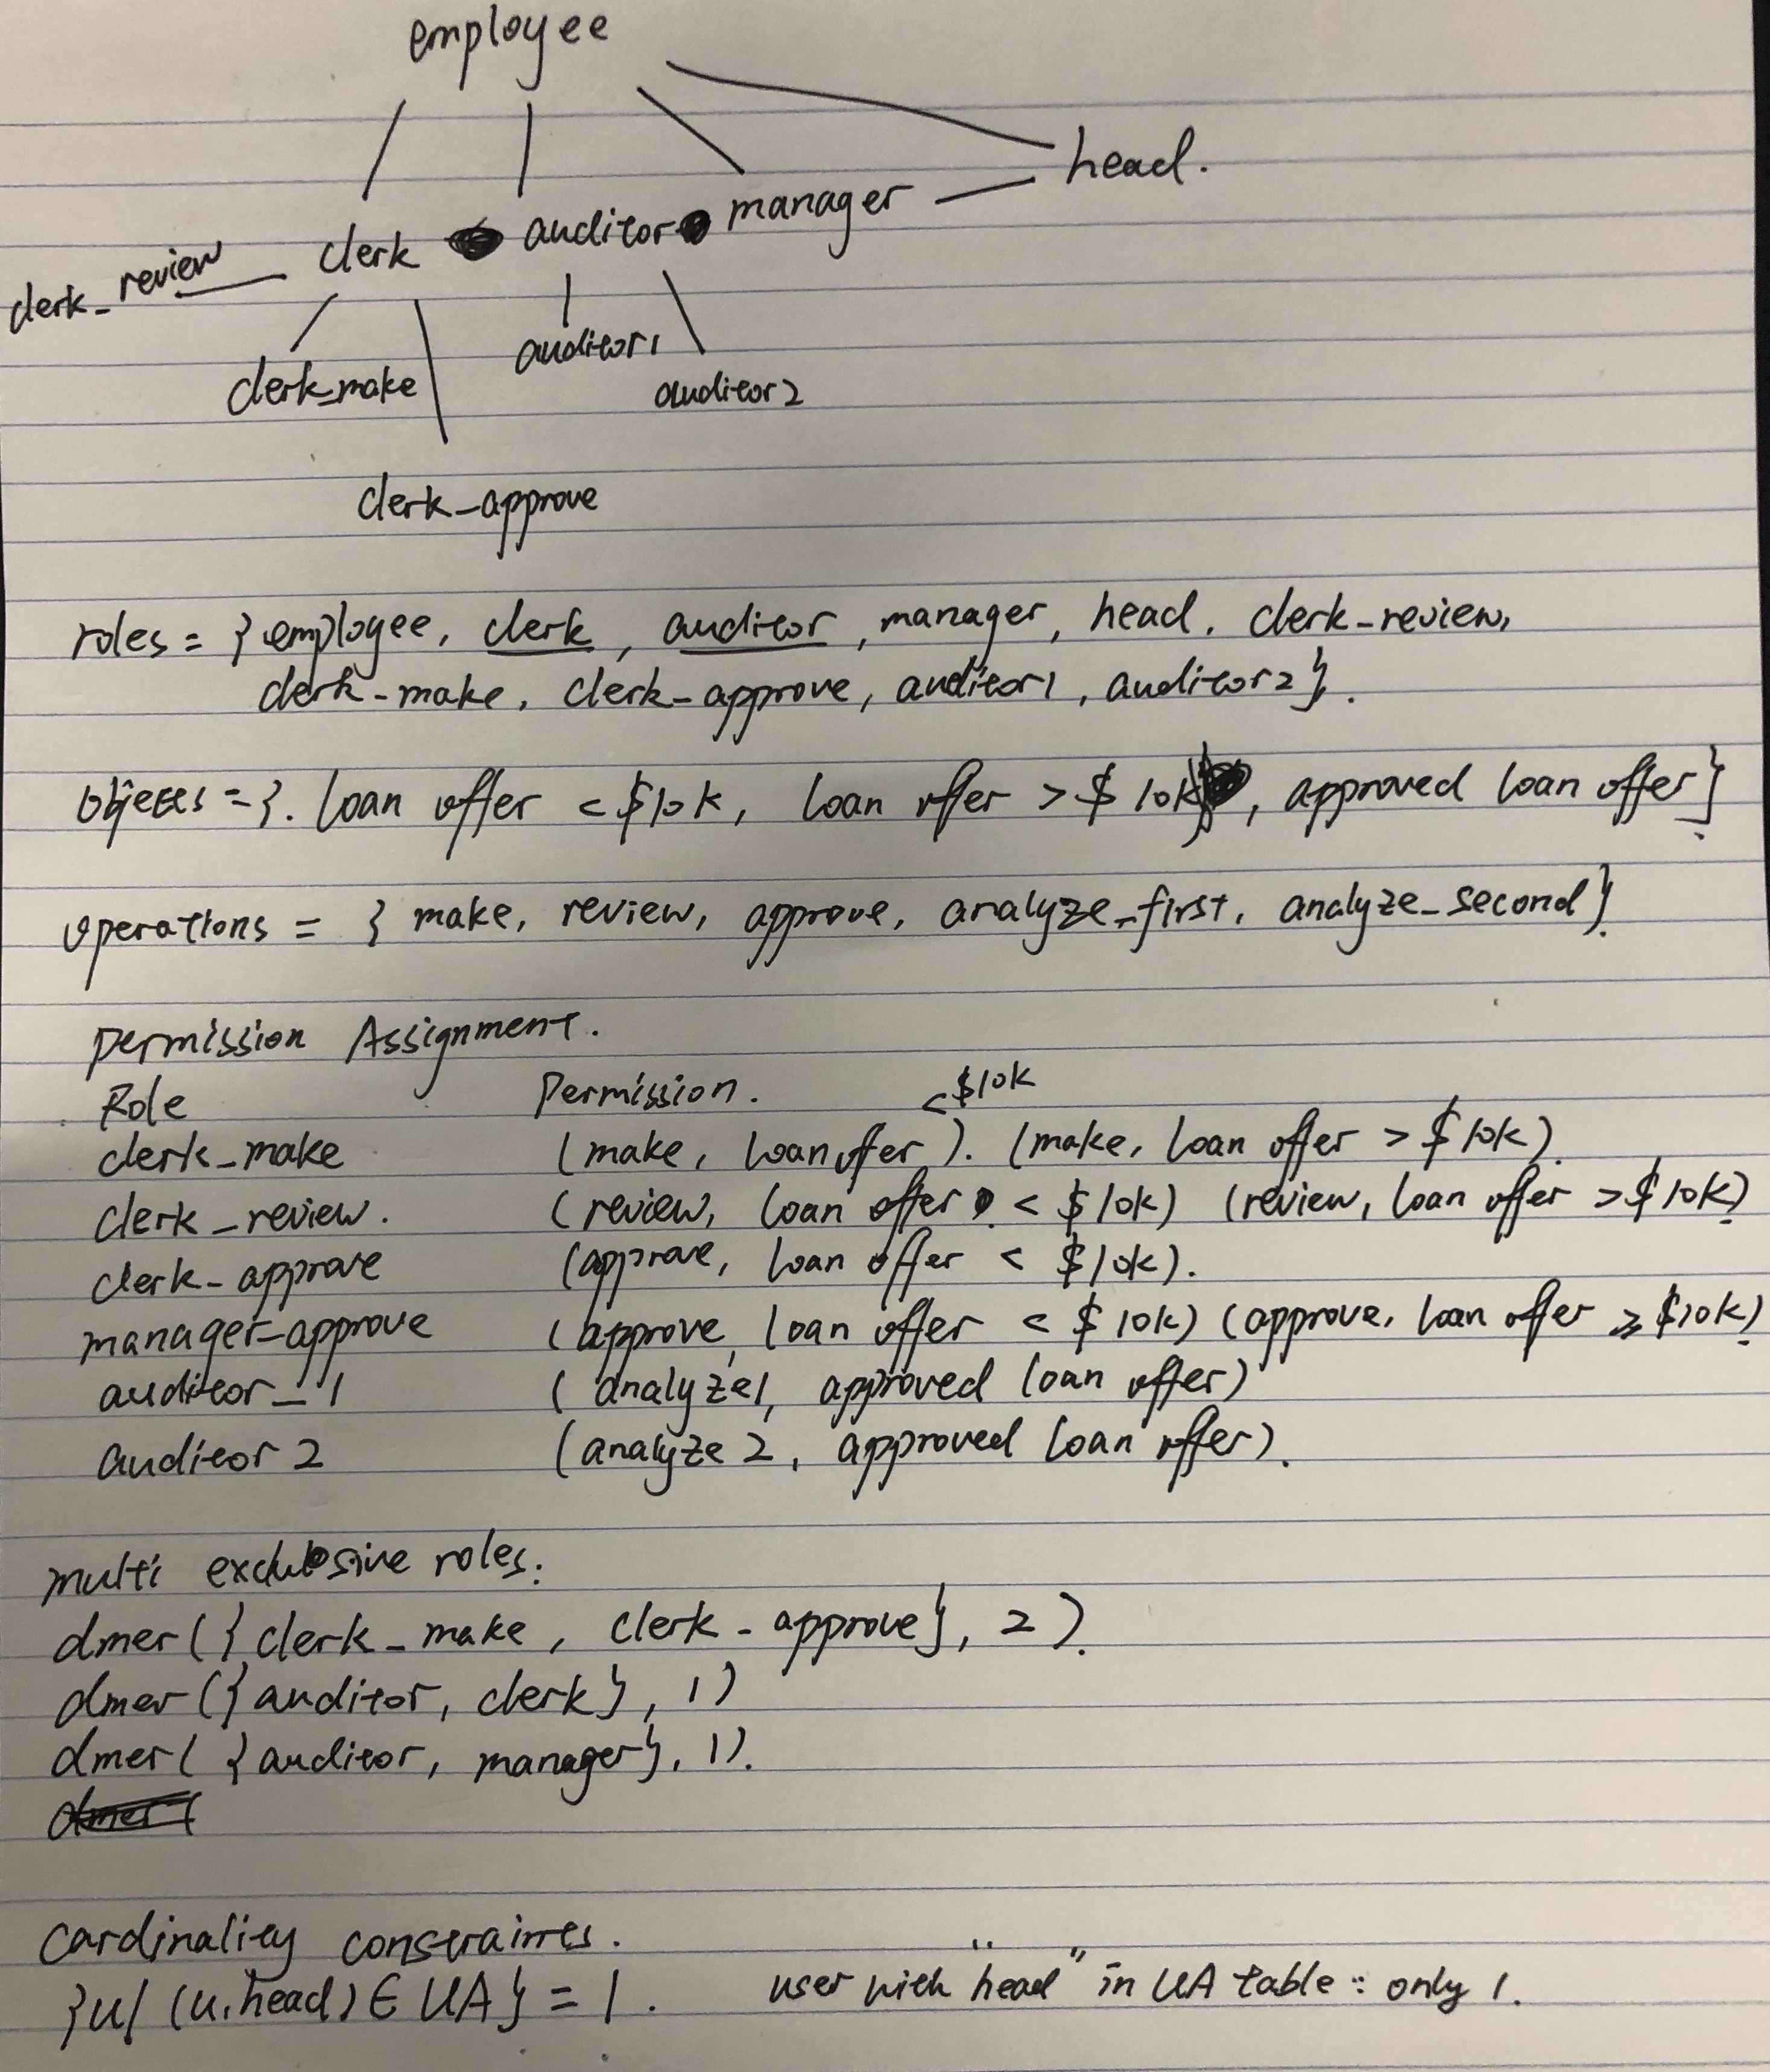 employee
head.
manager
auditor
clerk
clerk_review
auditor1
clerk_make
auditor2
clerk_approve
roles = { employee, clerk, auditor, manager, head. clerk-review,
clerk-make, clerk-approve, auditor1, auditor2}.
objects = {. loan offer < $10k, loan offer > $10k, approved loan offer}.
operations = { make, review, approve, analyze_first, analyze_second}.
permission Assignment.
Role permission. < $10k
clerk_make (make, loan offer ). (make, loan offer > $10k).
clerk_review. (review, loan offer . < $10k) (review, loan offer > $10k).
clerk-approve (approve, loan offer < $10k).
manager-approve (approve, loan offer < $10k) (approve, loan offer ≥ $10k).
auditor_1 (analyze1, approved loan offer)
auditor 2 (analyze 2, approved loan offer).
multi exclusive roles:
dmer({clerk_make, clerk-approve}, 2).
dmer({auditor, clerk}, 1)
dmer({auditor, manager}, 1).
dmer(
cardinality constraints.
{u| (u, head) ∈ UA} = 1. user with "head" in UA table : only 1.